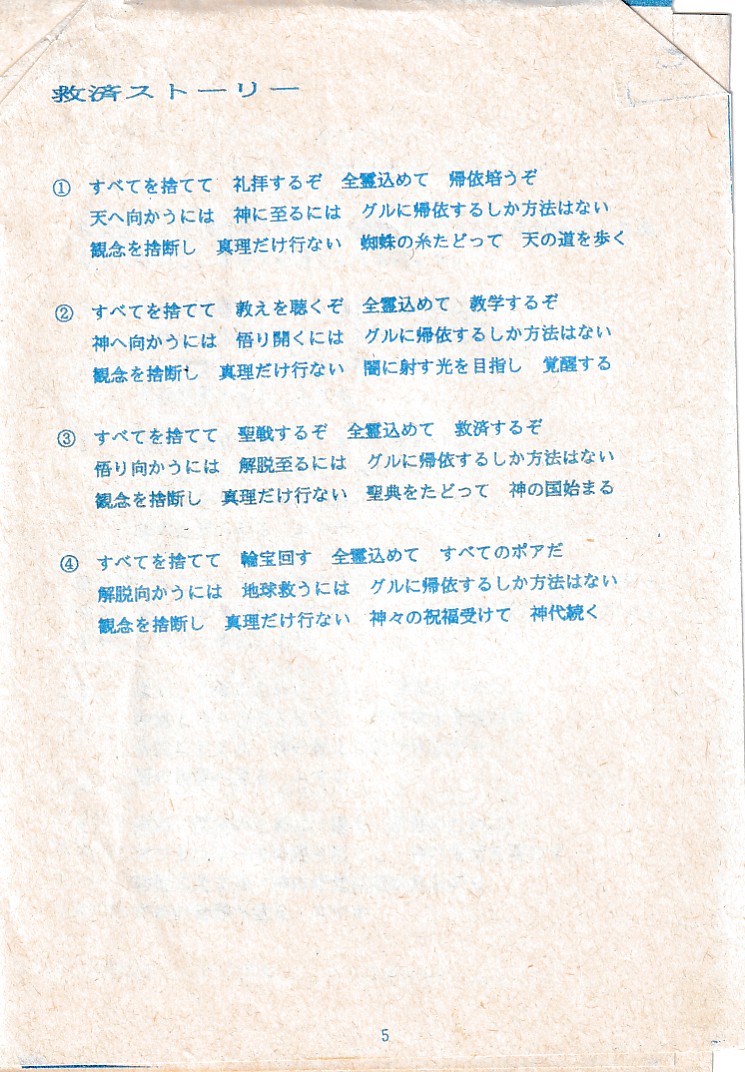 救済ストーリー
① すべてを捨てて 礼拝するぞ 全霊込めて 帰依培うぞ
天へ向かうには 神に至るには グルに帰依するしか方法はない
観念を捨断し 真理だけ行ない 蜘蛛の糸たどって 天の道を歩く
② すべてを捨てて 教えを聴くぞ 全霊込めて 教学するぞ
神へ向かうには 悟り開くには グルに帰依するしか方法はない
観念を捨断し 真理だけ行ない 闇に射す光を目指し 覚醒する
③ すべてを捨てて 聖戦するぞ 全霊込めて 救済するぞ
悟り向かうには 解脱至るには グルに帰依するしか方法はない
観念を捨断し 真理だけ行ない 聖典をたどって 神の国始まる
④ すべてを捨てて 輪宝回す 全霊込めて すべてのポアだ
解脱向かうには 地球救うには グルに帰依するしか方法はない
観念を捨断し 真理だけ行ない 神々の祝福受けて 神代続く
5